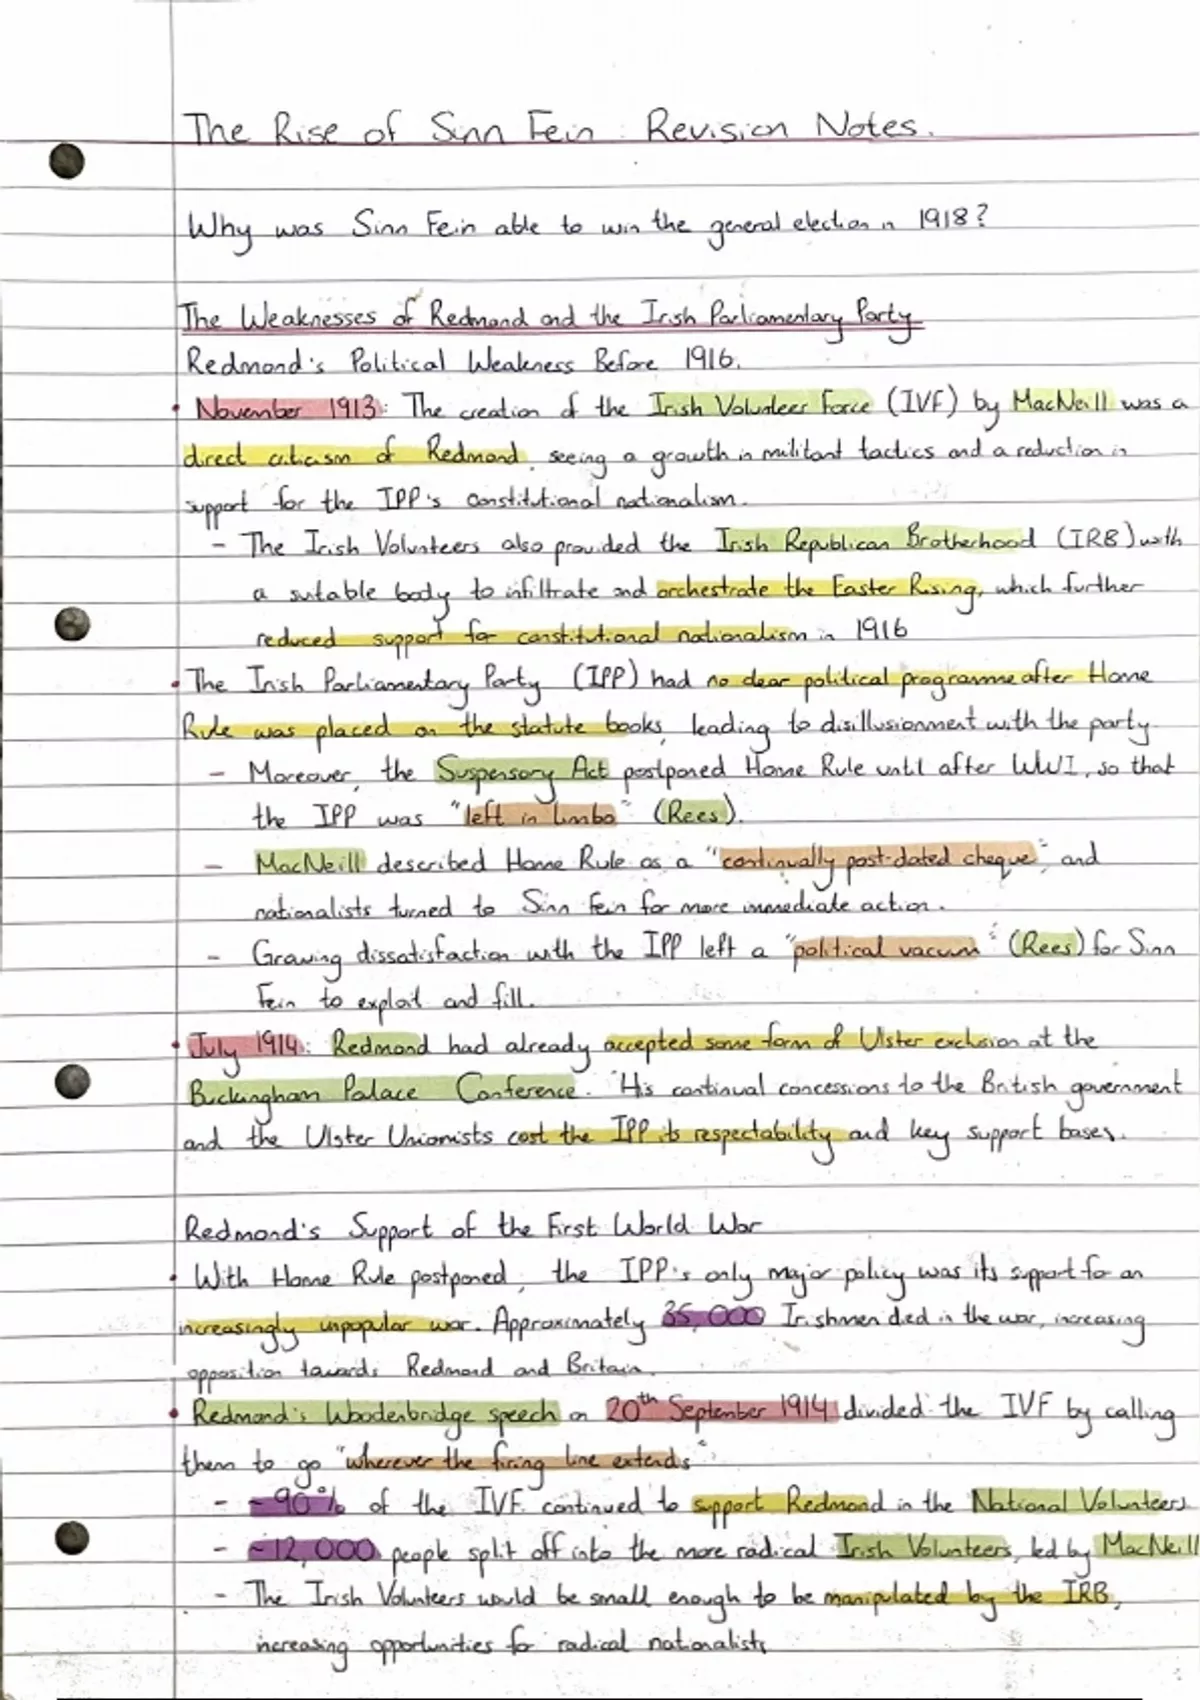 The Rise of Sinn Fein : Revision Notes.
Why was Sinn Fein able to win the general election in 1918?
The Weaknesses of Redmond and the Irish Parliamentary Party
Redmond's Political Weakness Before 1916.
• November 1913: The creation of the Irish Volunteer Force (IVF) by MacNeill was a
direct criticism of Redmond, seeing a growth in militant tactics and a reduction in
support for the IPP's constitutional nationalism.
- The Irish Volunteers also provided the Irish Republican Brotherhood (IRB) with
a suitable body to infiltrate and orchestrate the Easter Rising, which further
reduced support for constitutional nationalism in 1916
• The Irish Parliamentary Party (IPP) had no clear political programme after Home
Rule was placed on the statute books, leading to disillusionment with the party
- Moreover, the Suspensory Act postponed Home Rule until after WWI, so that
the IPP was "left in limbo" (Rees).
- MacNeill described Home Rule as a "continually post-dated cheque", and
nationalists turned to Sinn Fein for more immediate action.
- Growing dissatisfaction with the IPP left a "political vacuum" (Rees) for Sinn
Fein to exploit and fill.
• July 1914: Redmond had already accepted some form of Ulster exclusion at the
Buckingham Palace Conference. His continual concessions to the British government
and the Ulster Unionists cost the IPP its respectability and key support bases.
Redmond's Support of the First World War
• With Home Rule postponed, the IPP's only major policy was its support for an
increasingly unpopular war. Approximately 35,000 Irishmen died in the war, increasing
opposition towards Redmond and Britain.
• Redmond's Woodenbridge speech on 20th September 1914 divided the IVF by calling
them to go "wherever the firing line extends"
- ~90% of the IVF continued to support Redmond in the National Volunteers
- ~12,000 people split off into the more radical Irish Volunteers, led by MacNeill
- The Irish Volunteers would be small enough to be manipulated by the IRB,
increasing opportunities for radical nationalists